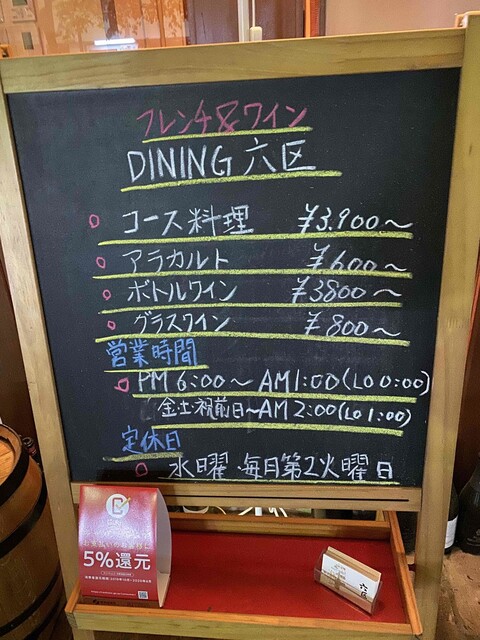 フレンチ&ワイン
DINING 六区
コース料理 ¥3.900～
アラカルト ¥600～
ボトルワイン ¥3800～
グラスワイン ¥800～
営業時間
PM 6:00～AM1:00(LO 0:00)
金土祝前日～AM2:00(LO 1:00)
定休日
水曜・毎月第2火曜日
5%還元
六区